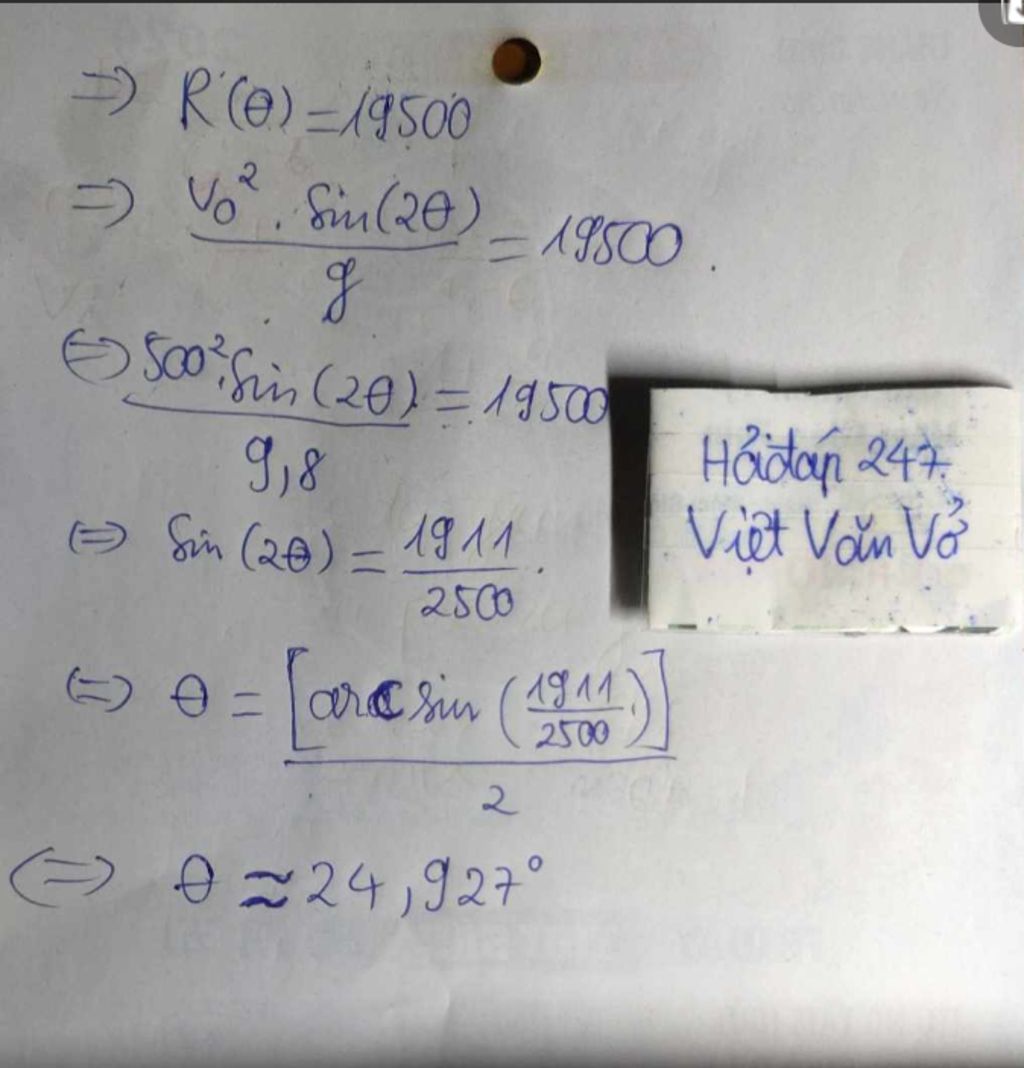 => R(θ) = 19500
=> v₀² . Sin(2θ) / g = 19500 .
<=> 500² . Sin(2θ) / 9,8 = 19500
<=> Sin(2θ) = 1911 / 2500 .
<=> θ = [arcsin(1911 / 2500)] / 2
<=> θ ≈ 24,927°
Hỏi đáp 247.
Việt Văn Vở